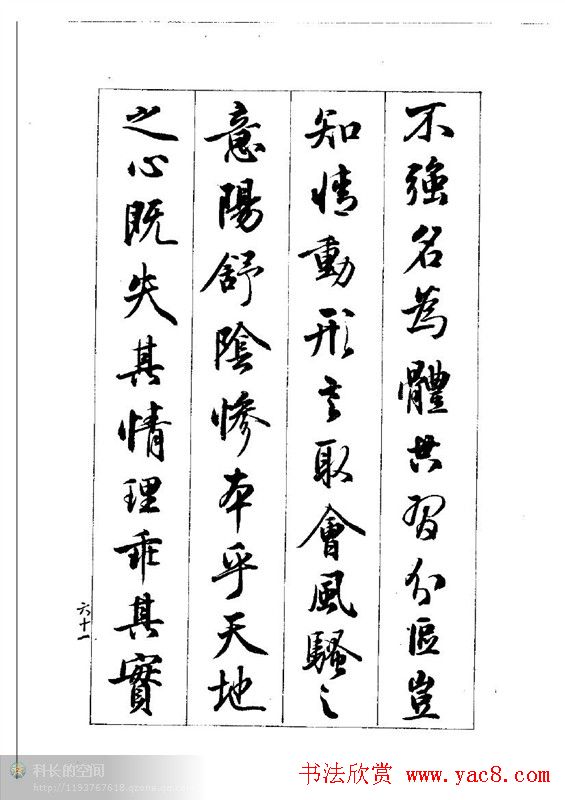 不強名為體共習分區豈
知情動形言取會風騷之
意陽舒陰慘本乎天地
之心既失其情理乖其實
六十一
科长的空间
http://1193767618.qzone.qq.com
书法欣赏 www.yac8.com